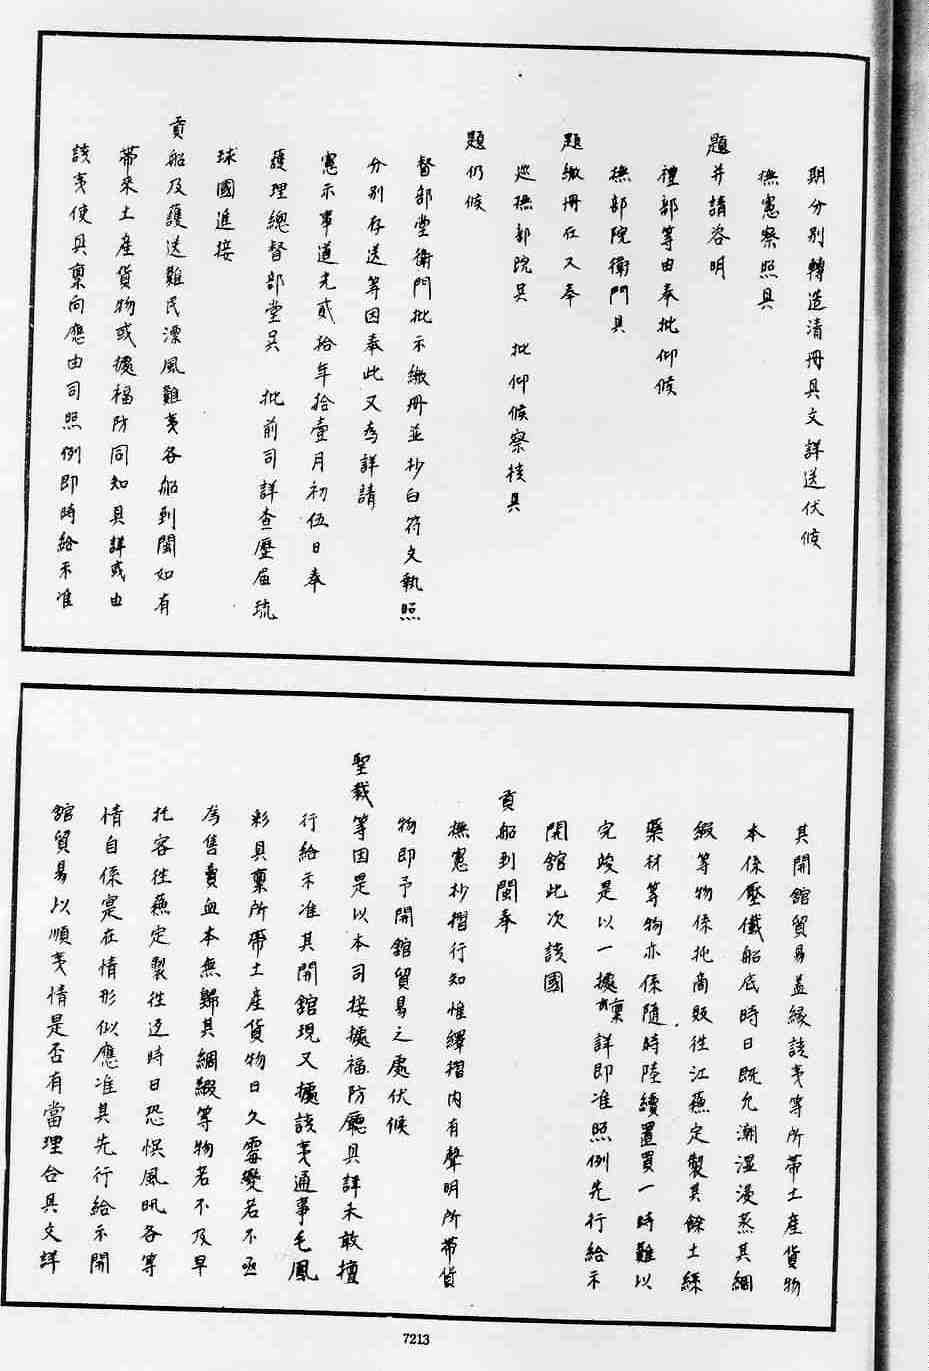 期分別轉造清冊具文詳送伏候
撫憲察照具
題并請咨明
禮部等由奉批仰候
撫部院衙門具
題繳冊在又奉
巡撫部院吳　批仰候察核具
題仍候
督部堂衙門批示繳冊並抄白符文執照
分別存送等因奉此又為詳請
憲示事道光貳拾年拾壹月初伍日奉
護理總督部堂吳　批前司詳查歷屆琉
球國進接
貢船及護送難民漂風難夷各船到閩如有
帶來土產貨物或據福防同知具詳或由
該夷使具稟向應由司照例即時給示准
其開館貿易盖緣該夷等所帯土產貨物
本係壓儎船底時日既允潮湿漫蒸其綢
緞等物係托商販往江蘇定製其餘土絲
藥材等物亦係隨時陸續置買一時難以
完竣是以一據稟詳即准照例先行給示
開館此次該國
貢船到閩奉
撫憲抄摺行知惟繹摺內有聲明所帯貨
物即予開舘貿易之處伏候
聖裁等因是以本司接據福防廳具詳未敢擅
行給示准其開舘現又據該夷通事毛鳳
彩具稟所帶土產貨物日久霉變若不亟
為售賣血本無歸其綢緞等物若不及早
托客往蘇定製往逕時日恐悞風帆各等
情自係寔在情形似應准其先行給示開
舘貿易以順夷情是否有當理合具文詳
7213